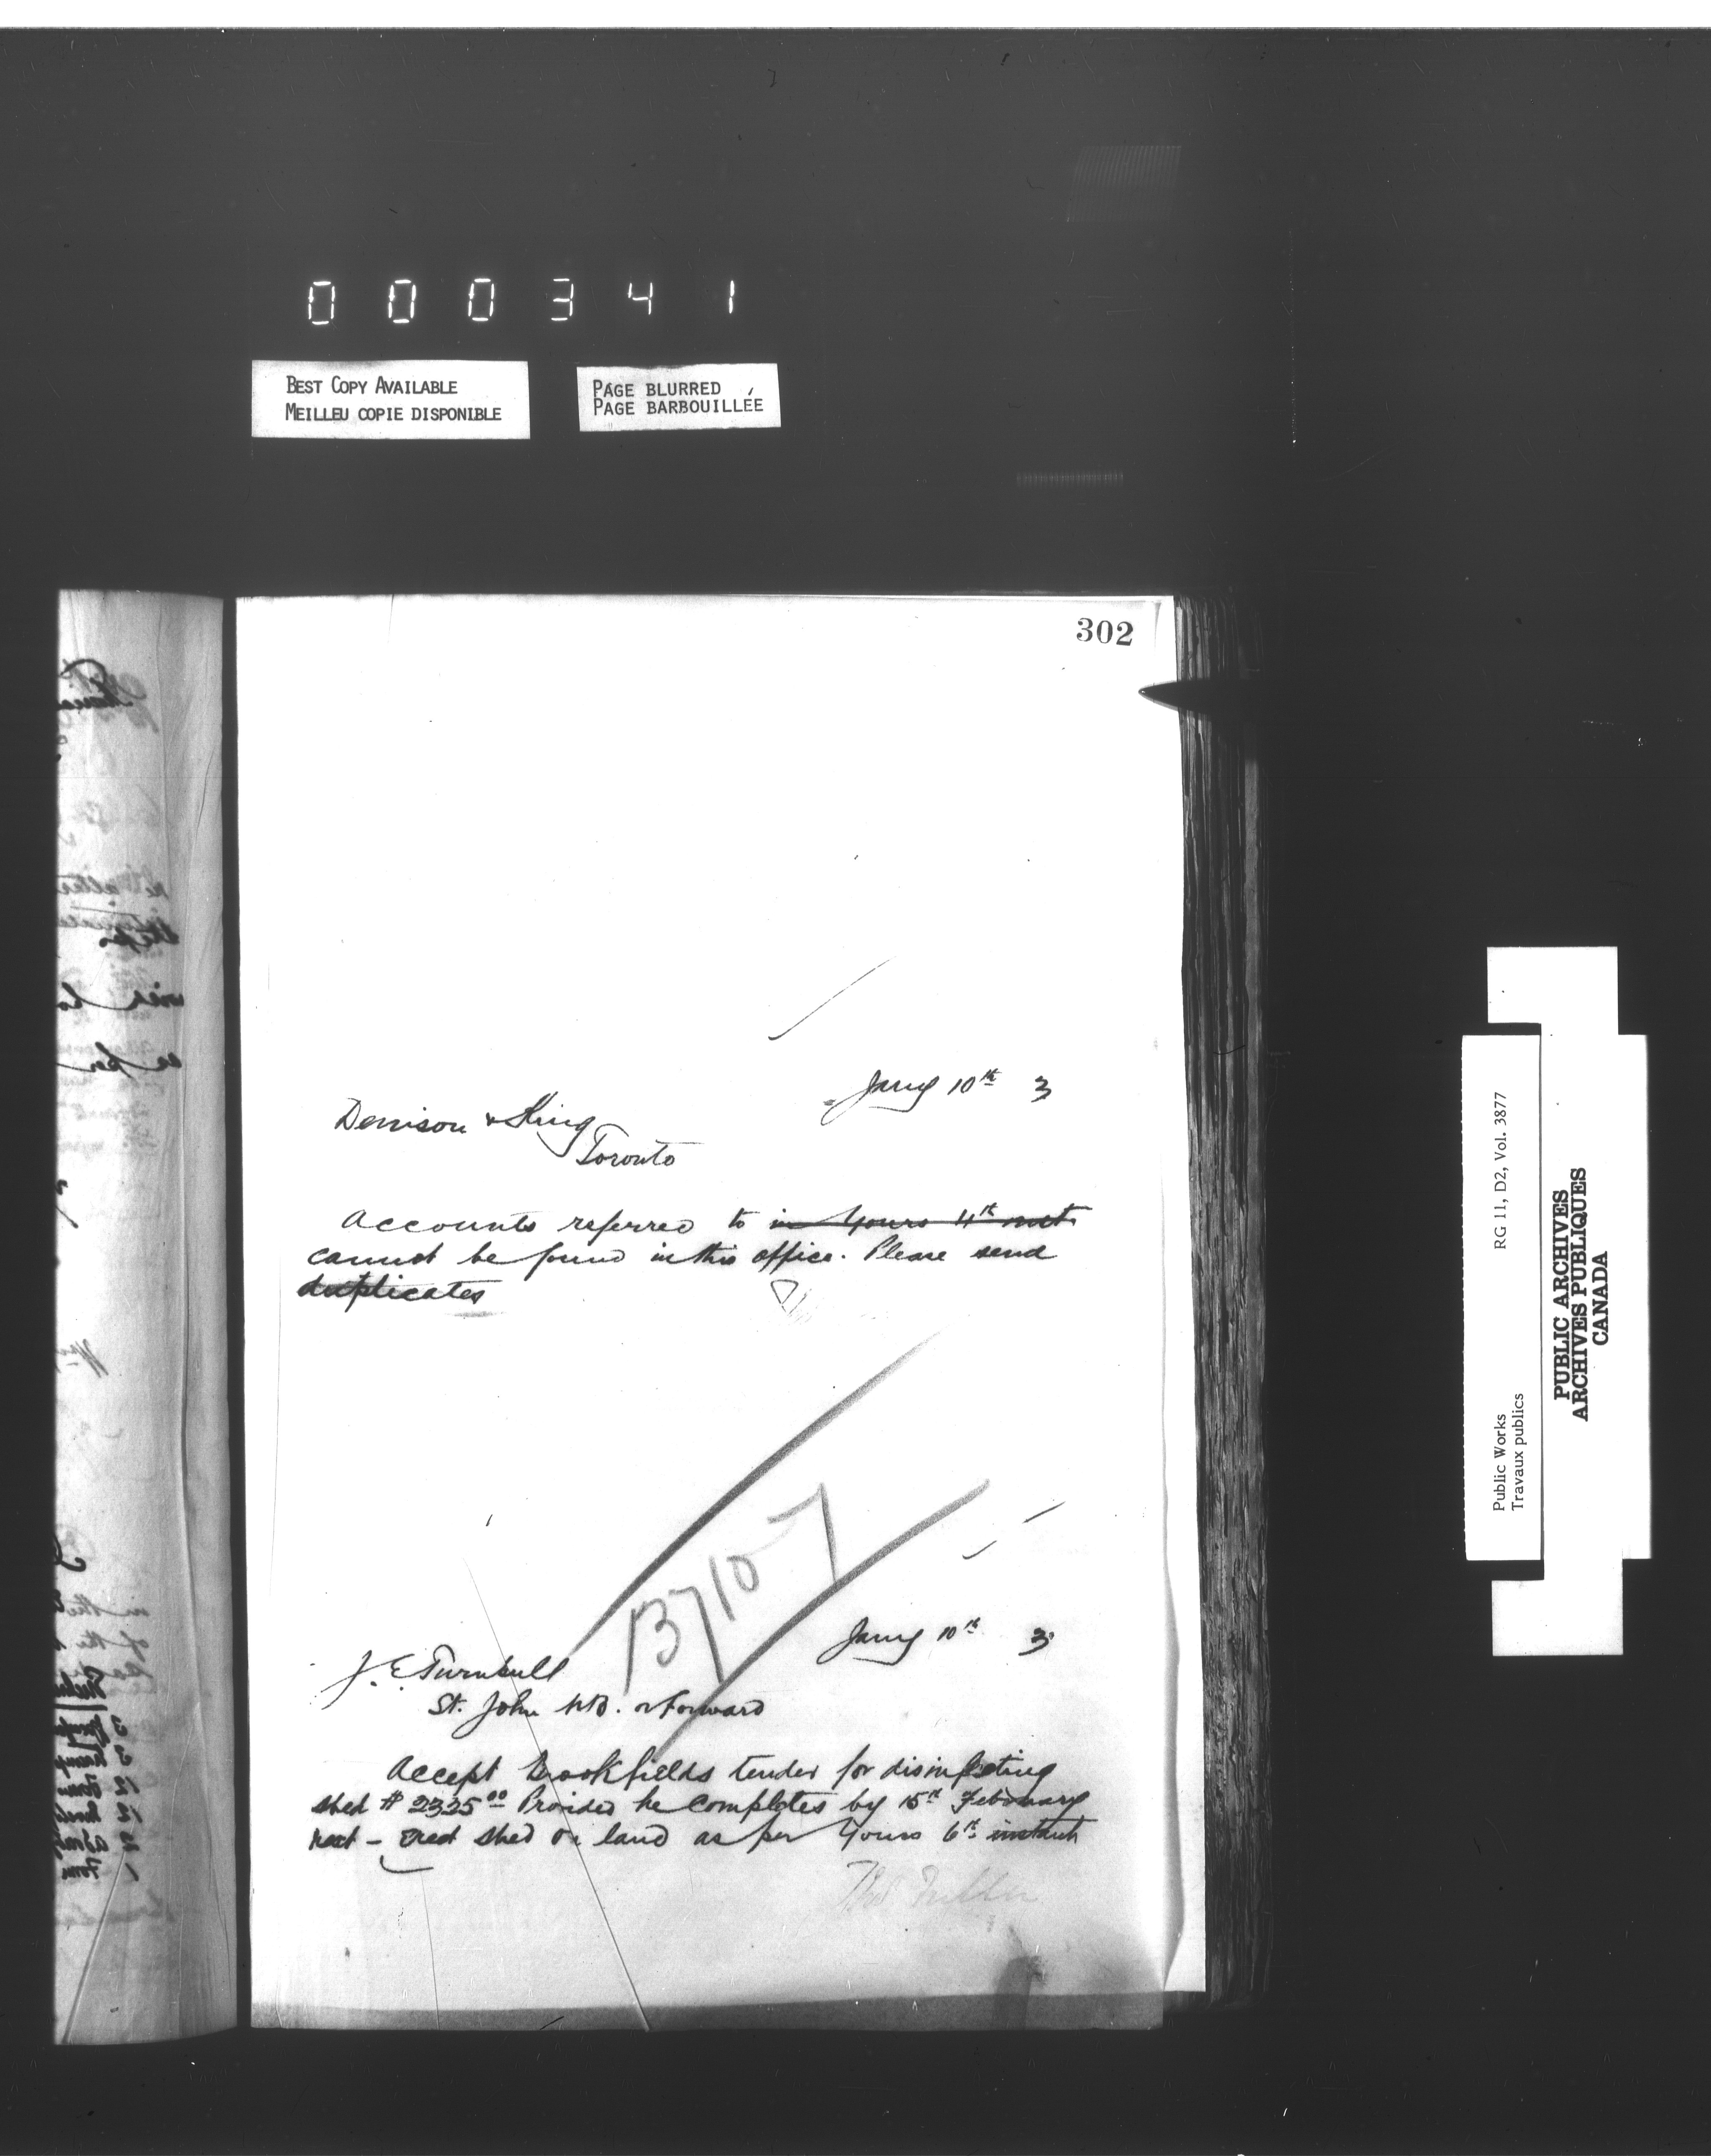 000341
BEST COPY AVAILABLE
MEILLEU COPIE DISPONIBLE
PAGE BLURRED
PAGE BARBOUILLÉE
302
Jany 10th 3
Denison & King
Toronto
Accounts referred to in Yours 4th inst
cannot be found in this office. Please send
duplicates
137107
Jany 10th 3
J. E. Turnbull
St. John NB. or Forward
Accept Brookfields tender for disinfecting
shed # 2335 00 Provided he completes by 15th February
next - Erect shed on land as per Yours 6th instant
Thos Fuller
Public Works
Travaux publics
RG 11, D2, Vol. 3877
PUBLIC ARCHIVES
ARCHIVES PUBLIQUES
CANADA